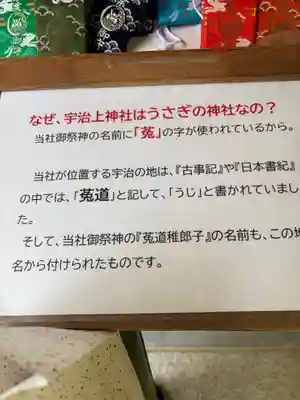 なぜ、宇治上神社はうさぎの神社なの？
当社御祭神の名前に「菟」の字が使われているから。
当社が位置する宇治の地は、『古事記』や『日本書紀』
の中では、「菟道」と記して、「うじ」と書かれていまし
た。
そして、当社御祭神の『菟道稚郎子』の名前も、この地
名から付けられたものです。